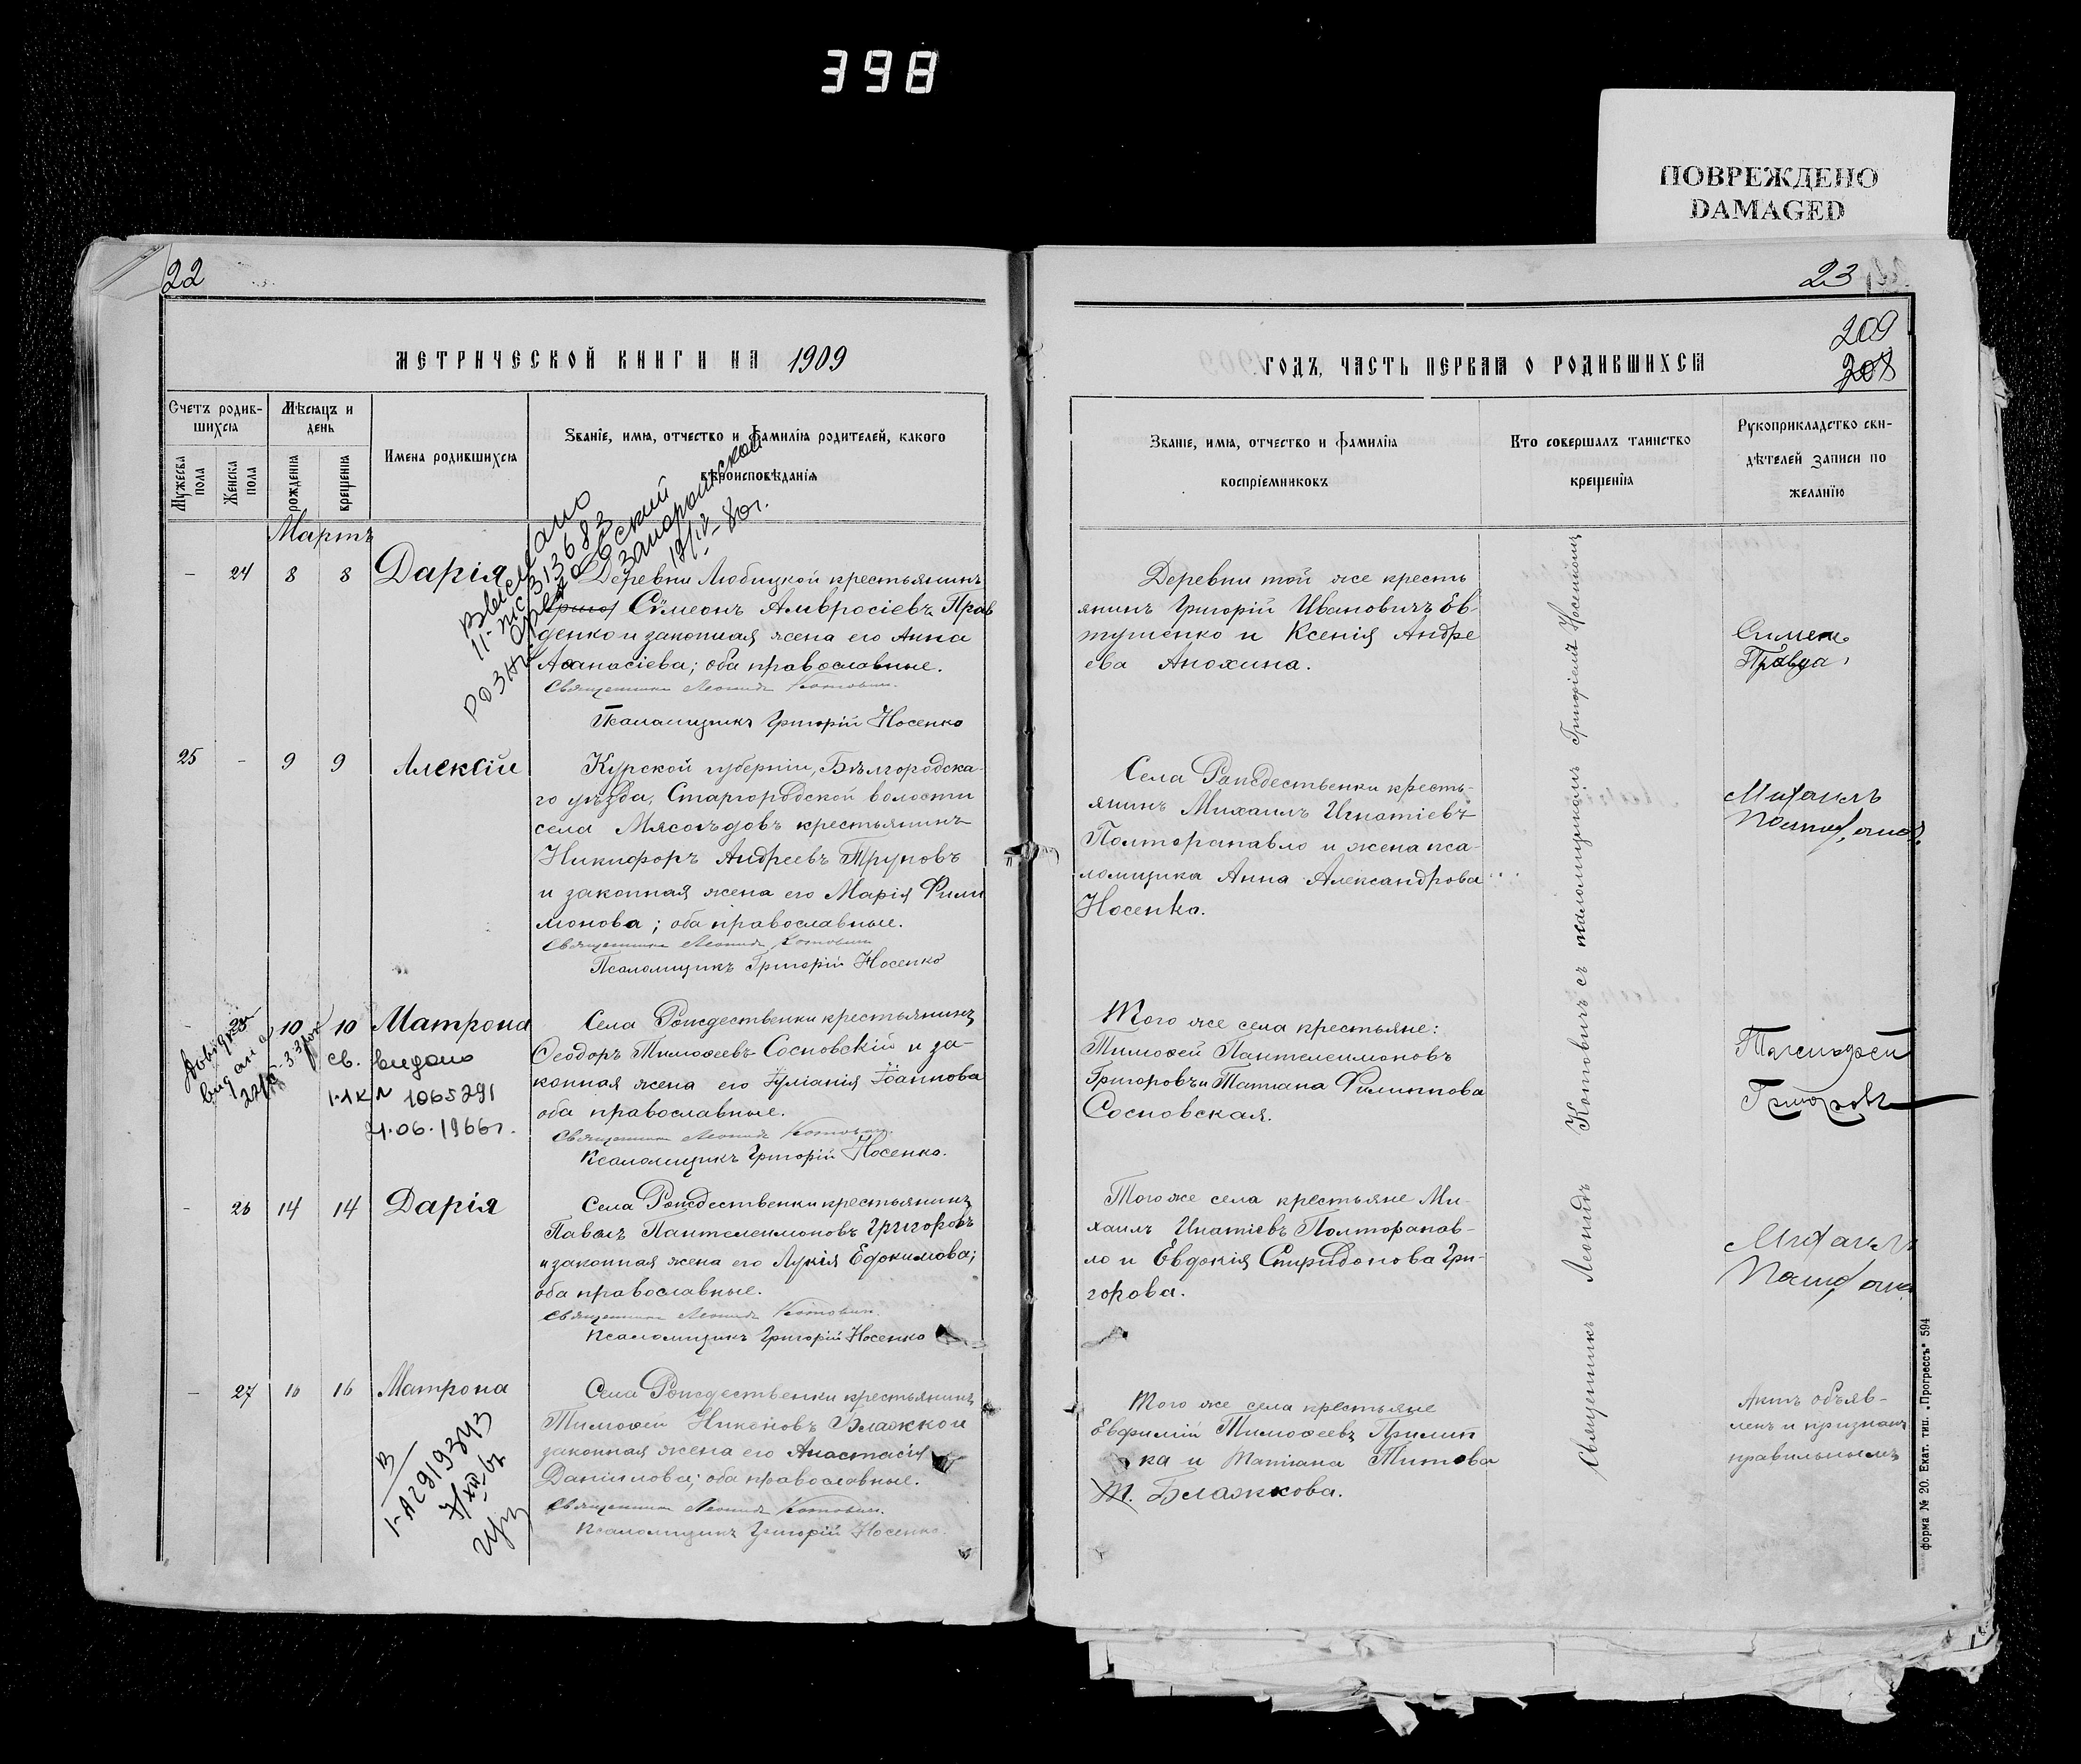 398
ПОВРЕЖДЕНО
DAMAGED
22
МЕТРИЧЕСКОЙ КНИГИ НА 1909
Счетъ родив-
шихся
Мѣсяцъ и
день
Мужеска
пола
Женска
пола
рожденія
крещенія
Имена родившихся
Званіе, имя, отчество и фамилія родителей, какого
вѣроисповѣданія
Мартъ
- 24 8 8 Дарія
Деревни Любицкой крестьянинъ
Сѷмеонъ Амвросіевъ Прав
денко и законная жена его Анна
Аѳанасіева; оба православные.
Священникъ Леонидъ Котовичъ.
Псаломщикъ Григорій Носенко
Выслано
12/IV-80г.
25 - 9 9 Алексій
Курской губерніи, Бѣлгородска-
го уѣзда, Старгородской волости
села Мясоѣдовъ крестьянинъ
Никифоръ Андреевъ Труновъ
и законная жена его Марія Фили
монова; оба православные.
Священникъ Леонидъ Котовичъ
Псаломщикъ Григорій Носенко
- 25 10 10 Матрона
св. видано
1065291
21.06.1966г.
Села Рождественки крестьянинъ
Ѳеодоръ Тимоѳеевъ Сосновскій и за-
конная жена его Іуліанія Іоаннова
оба православные.
Священникъ Леонидъ Котовичъ.
Псаломщикъ Григорій Носенко.
- 26 14 14 Дарія
Села Рождественки крестьянинъ
Павелъ Пантелеимоновъ Григоровъ
и законная жена его Лукія Евдокимова;
оба православные.
Священникъ Леонидъ Котовичъ.
Псаломщикъ Григорій Носенко
- 27 16 16 Матрона
Села Рождественки крестьянинъ
Тимоѳей Никоновъ Блажко и
законная жена его Анастасія
Даніилова; оба православные.
Священникъ Леонидъ Котовичъ.
Псаломщикъ Григорій Носенко.
23
209
208
ГОДЪ, ЧАСТЬ ПЕРВАЯ О РОДИВШИХСЯ
Званіе, имя, отчество и фамилія
воспріемниковъ
Кто совершалъ таинство
крещенія
Рукоприкладство сви-
дѣтелей записи по
желанію
Деревни той же кресть
янинъ Григорій Ивановичъ Ев-
тушенко и Ксенія Андре
ева Анохина.
Симеонъ
Правда
Села Рождественки кресть-
янинъ Михаилъ Игнатіевъ
Полторапавло и жена пса-
ломщика Анна Александрова
Носенко.
Михаилъ
Того же села крестьяне:
Тимоѳей Пантелеимоновъ
Григоровъ и Татіана Филиппова
Сосновская.
Тимофей
Григоровъ
Того же села крестьяне Ми-
хаилъ Игнатіевъ Полторапав-
ло и Евдокія Спиридонова Гри-
горова.
Михаилъ
Того же села крестьяне
Евфимій Тимоѳеевъ Прилип
ка и Татіана Титова
Блажкова.
Актъ объяв-
ленъ и признанъ
правильнымъ
Священникъ Леонидъ Котовичъ съ псаломщикомъ Григоріемъ Носенкомъ
форма № 20. Екат. тип. „Прогрессъ“ 594